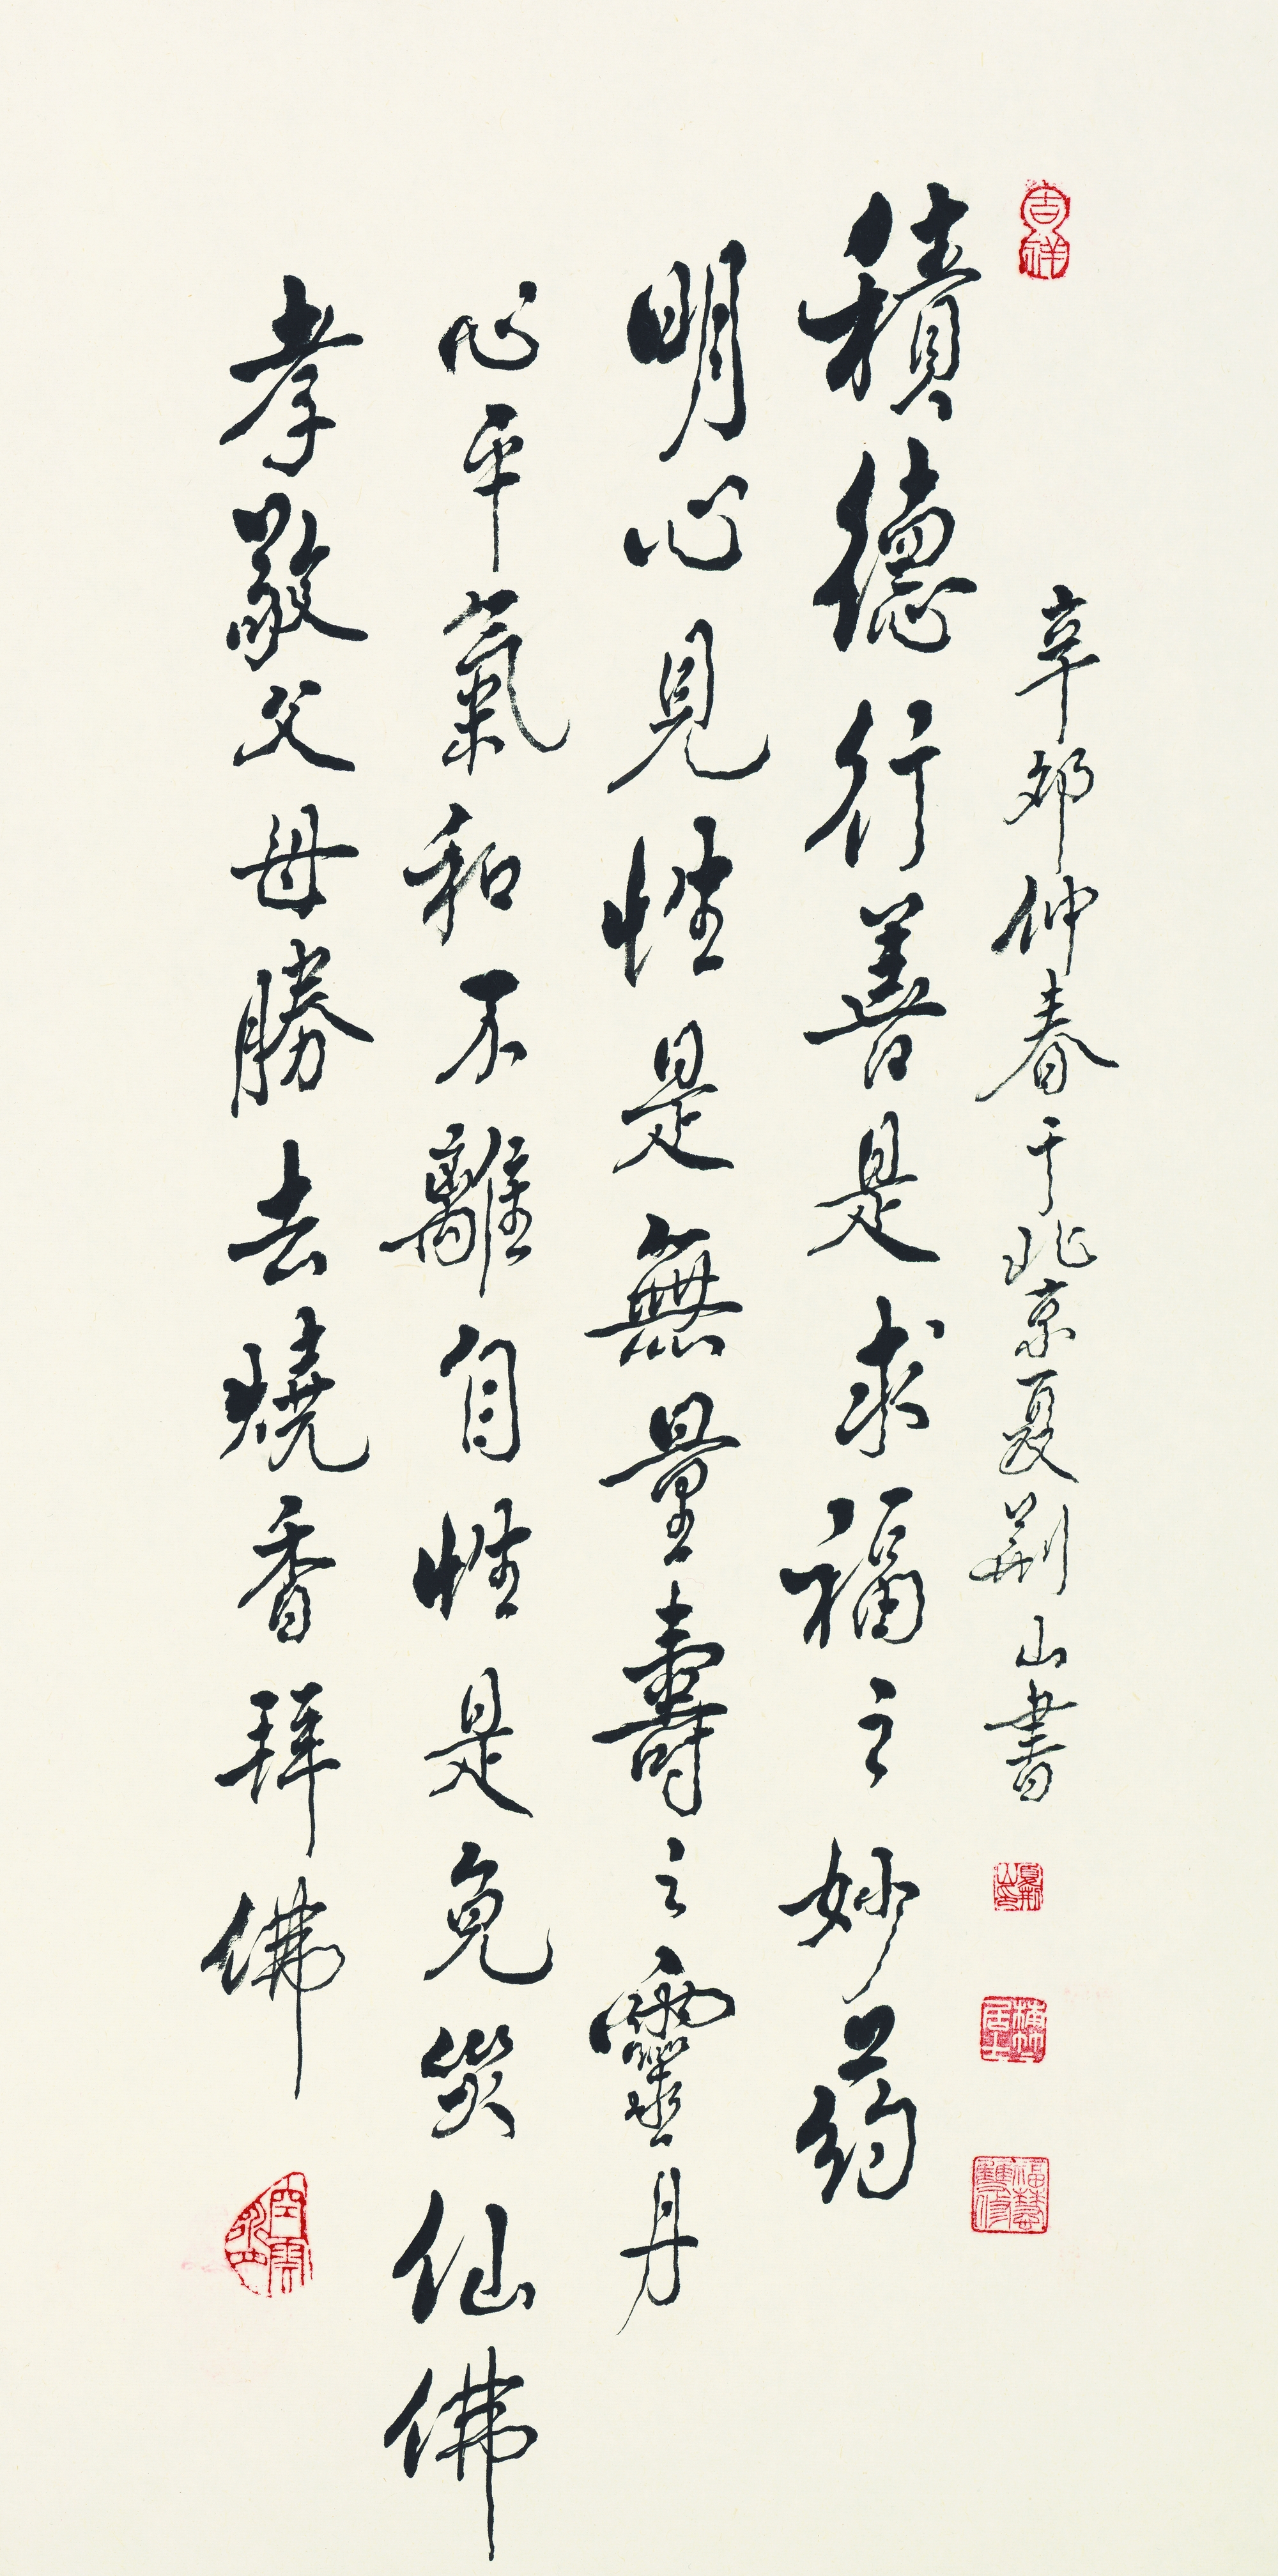 吉祥
辛卯仲春于北京夏荊山書
積德行善是求福之妙药
明心見性是無量壽之靈丹
心平氣和不離自性是免災仙佛
孝敬父母勝去燒香拜佛
福慧雙修